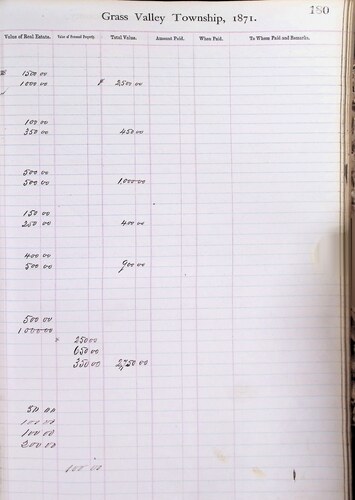 180
Grass Valley Township, 1871.
Value of Real Estate. Value of Personal Property. Total Value. Amount Paid. When Paid. To Whom Paid and Remarks.
1500 00
1000 00 2500 00
100 00
350 00 450 00
500 00
500 00 1,000 00
150 00
250 00 400 00
400 00
500 00 900 00
500 00
1000 00
250 00
650 00
350 00 2,750 00
50 00
100 00
100 00
200 00
100 00